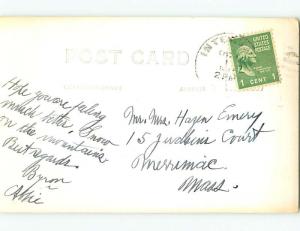 POST CARD
INTER
UNITED STATES
POSTAGE
1 CENT 1
Hope you are feeling
much better. Snow
on the mountains
Best regards.
Byron
Allie
Mr. Mrs. Hazen Emery
15 Judkins Court
Merrimac
Mass.